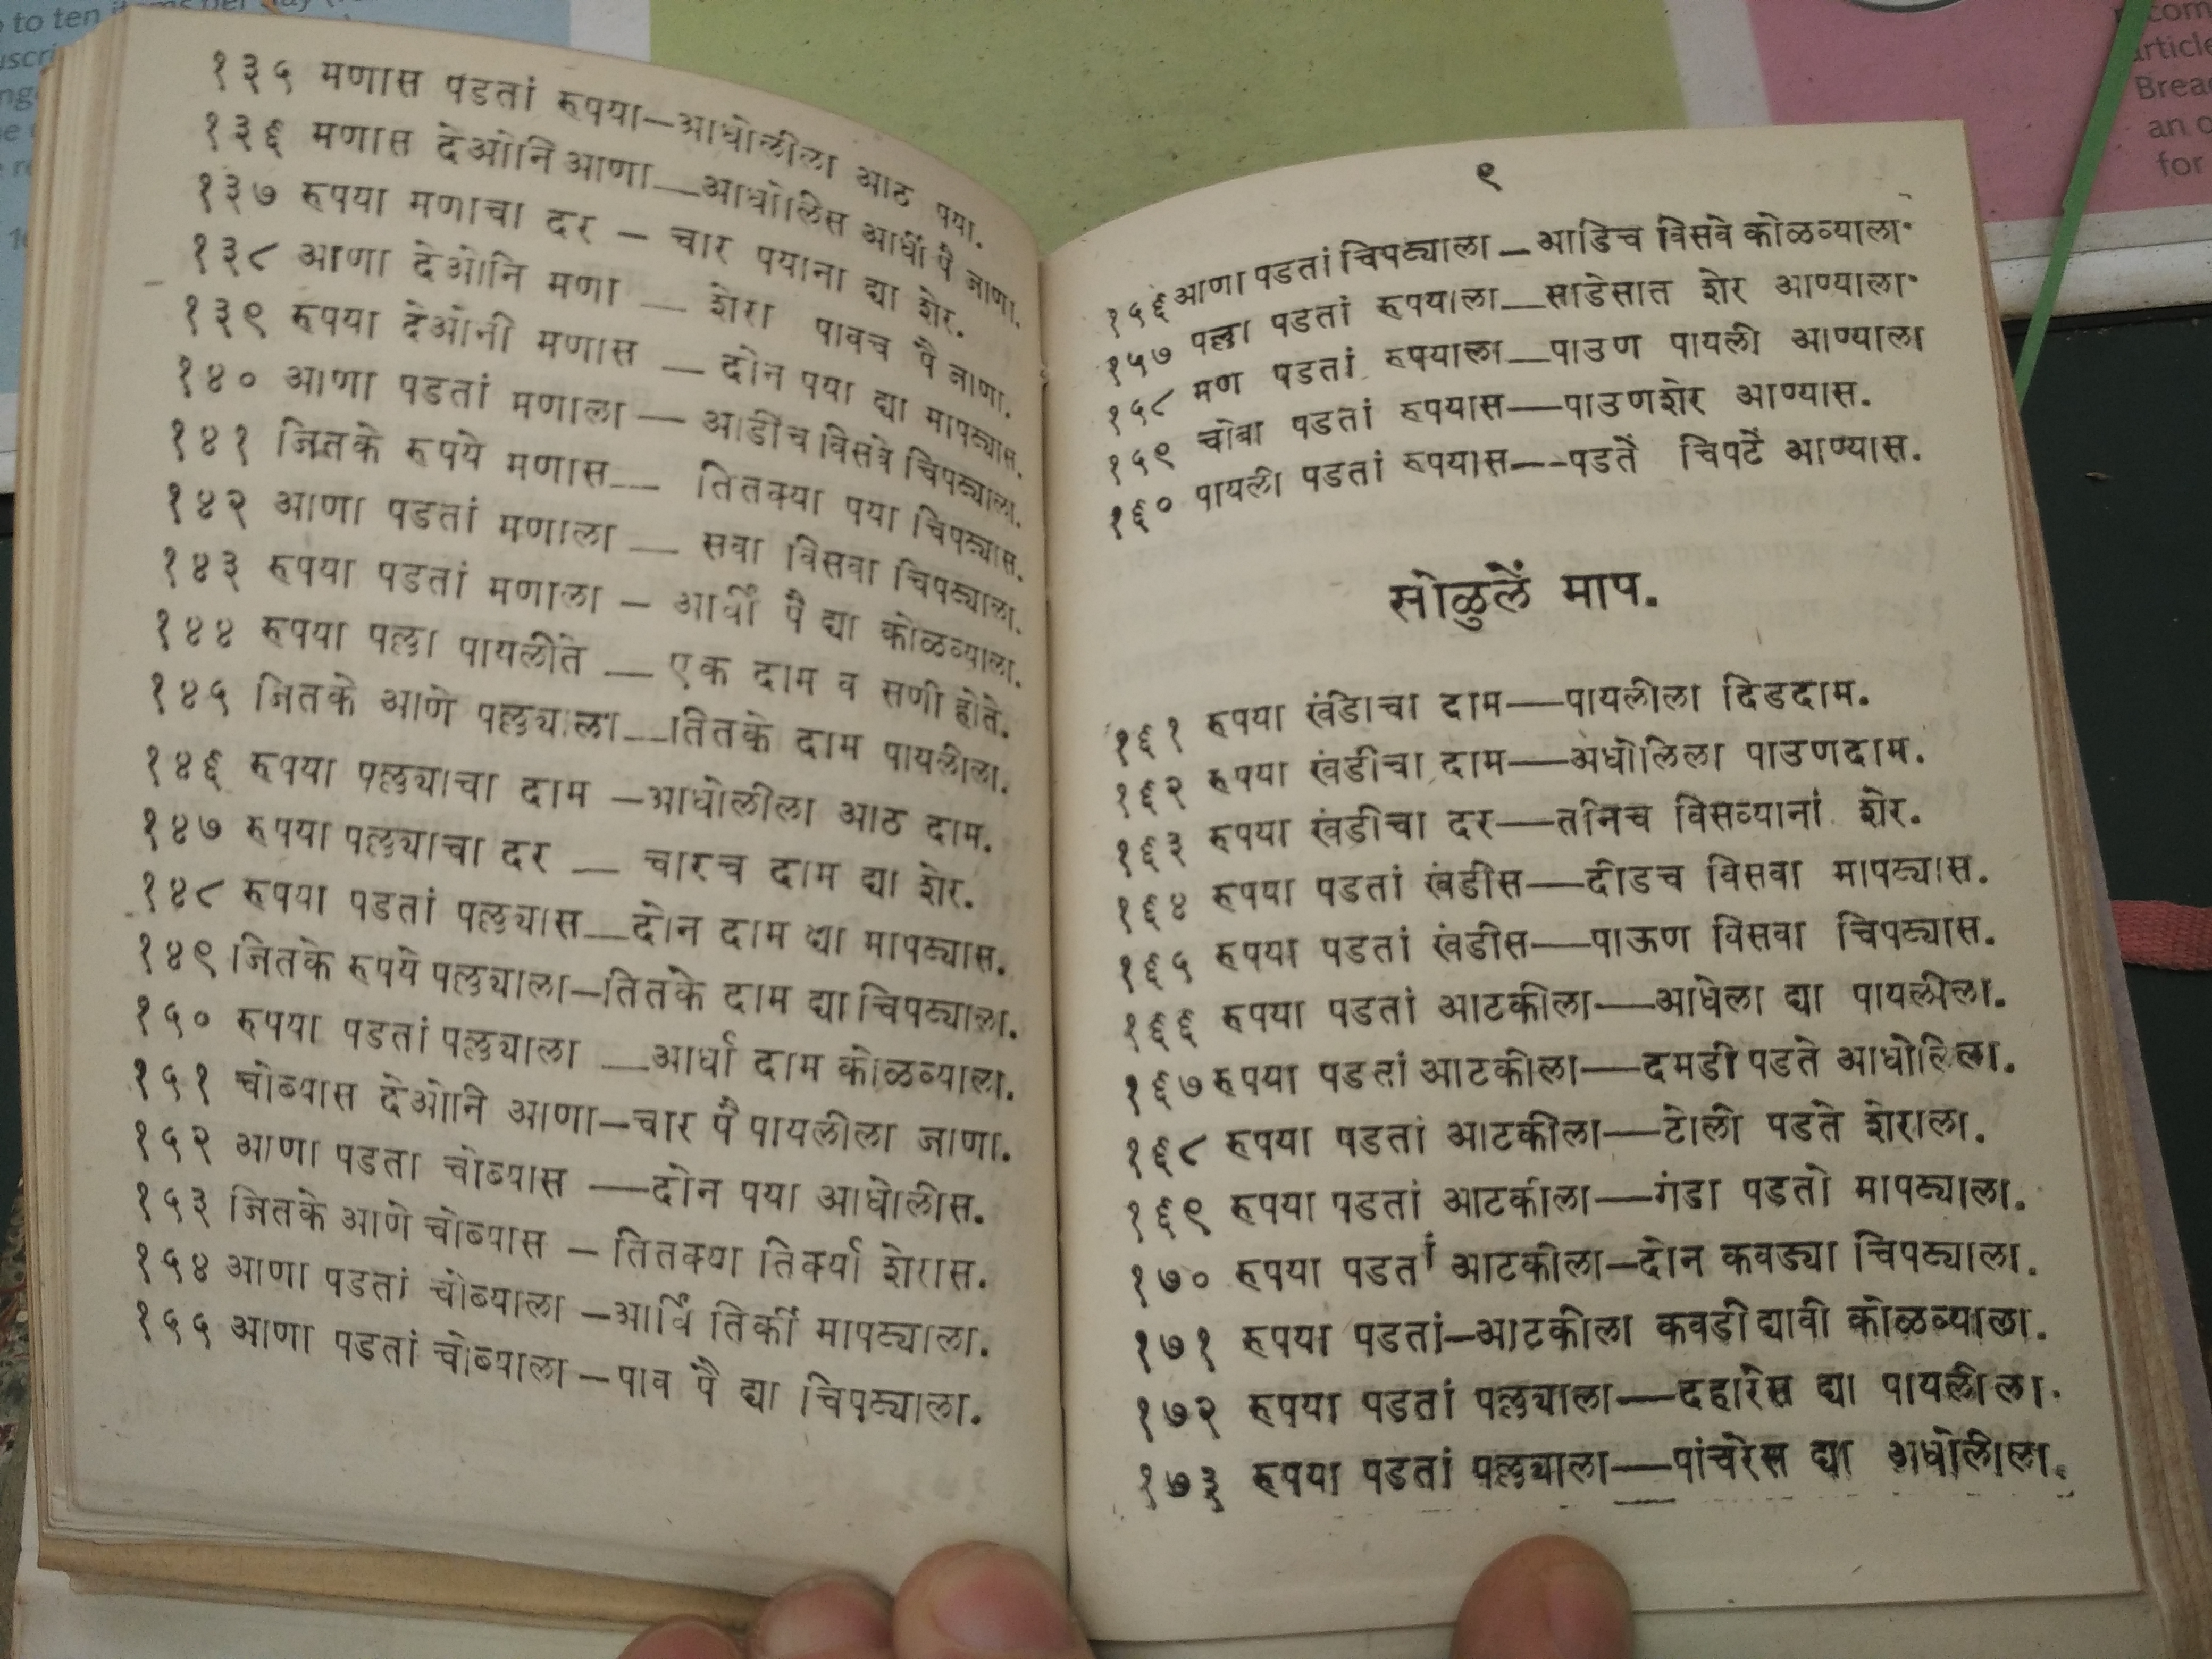 १३५ मणास पडतां रुपया—आधोलीला आठ पया.
१३६ मणास देओनि आणा—आधोलिस आर्धी पै जाणा.
१३७ रुपया मणाचा दर – चार पयाना द्या शेर.
१३८ आणा देओनि मणा — शेरा पावच पै जाणा.
१३९ रुपया देओनी मणास — दोन पया द्या मापट्यास.
१४० आणा पडतां मणाला — आडीच विसवे चिपट्याला.
१४१ जितके रुपये मणास— तितक्या पया चिपट्यास.
१४२ आणा पडतां मणाला — सवा विसवा चिपट्याला.
१४३ रुपया पडतां मणाला – आर्धी पै द्या कोळव्याला.
१४४ रुपया पल्ला पायलीते — एक दाम व सणी होते.
१४५ जितके आणे पल्लयाला—तितके दाम पायलीला.
१४६ रुपया पल्लयाचा दाम –आधोलीला आठ दाम.
१४७ रुपया पल्लयाचा दर — चारच दाम द्या शेर.
१४८ रुपया पडतां पल्लयास—दोन दाम द्या मापट्यास.
१४९ जितके रुपये पल्लयाला–तितके दाम द्या चिपट्याला.
१५० रुपया पडतां पल्लयाला —आर्धा दाम कोळव्याला.
१५१ चोब्यास देओनि आणा–चार पै पायलीला जाणा.
१५२ आणा पडता चोब्यास —दोन पया आधोलीस.
१५३ जितके आणे चोब्यास – तितक्या तिर्क्या शेरास.
१५४ आणा पडतां चोब्याला –आर्धि तिर्की मापट्याला.
१५५ आणा पडतां चोब्याला–पाव पै द्या चिपट्याला.
९
१५६ आणा पडतां चिपट्याला–आडिच विसवे कोळव्याला.
१५७ पल्ला पडतां रुपयाला—साडेसात शेर आण्याला.
१५८ मण पडतां रुपयाला—पाउण पायली आण्याला
१५९ चोबा पडतां रुपयास—पाउणशेर आण्यास.
१६० पायली पडतां रुपयास—पडतें चिपटें आण्यास.
सोळुलें माप.
१६१ रुपया खंडिाचा दाम—पायलीला दिडदाम.
१६२ रुपया खंडीचा दाम—अधोलिला पाउणदाम.
१६३ रुपया खंडीचा दर—तनिच विसव्यानां शेर.
१६४ रुपया पडतां खंडीस—दीडच विसवा मापट्यास.
१६५ रुपया पडतां खंडीस—पाऊण विसवा चिपट्यास.
१६६ रुपया पडतां आटकीला—आधेला द्या पायलीला.
१६७ रुपया पडतां आटकीला—दमडी पडते आधोलिला.
१६८ रुपया पडतां आटकीला—टोली पडते शेराला.
१६९ रुपया पडतां आटकीला—गंडा पडतो मापट्याला.
१७० रुपया पडतां आटकीला–दोन कवड्या चिपट्याला.
१७१ रुपया पडतां–आटकीला कवडी द्यावी कोळव्याला.
१७२ रुपया पडतां पल्लयाला—दहारेस द्या पायलीला.
१७३ रुपया पडतां पल्लयाला—पांचरेस द्या अधोलीला.